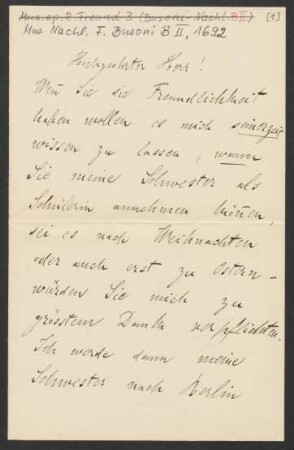 Mus.ep. R. Freund 3 (Busoni-Nachl. B II) [1]
Mus. Nachl. F. Busoni B II, 1692
Hochgeehrter Herr!
Wenn Sie die Freundlichkeit
haben wollen es mich seinerzeit
wissen zu lassen, wann
Sie meine Schwester als
Schülerin annehmen können,
sei es nach Weihnachten
oder auch erst zu Ostern –
würden Sie mich zu
grösstem Dank verpflichten.
Ich werde dann meine
Schwester nach Berlin